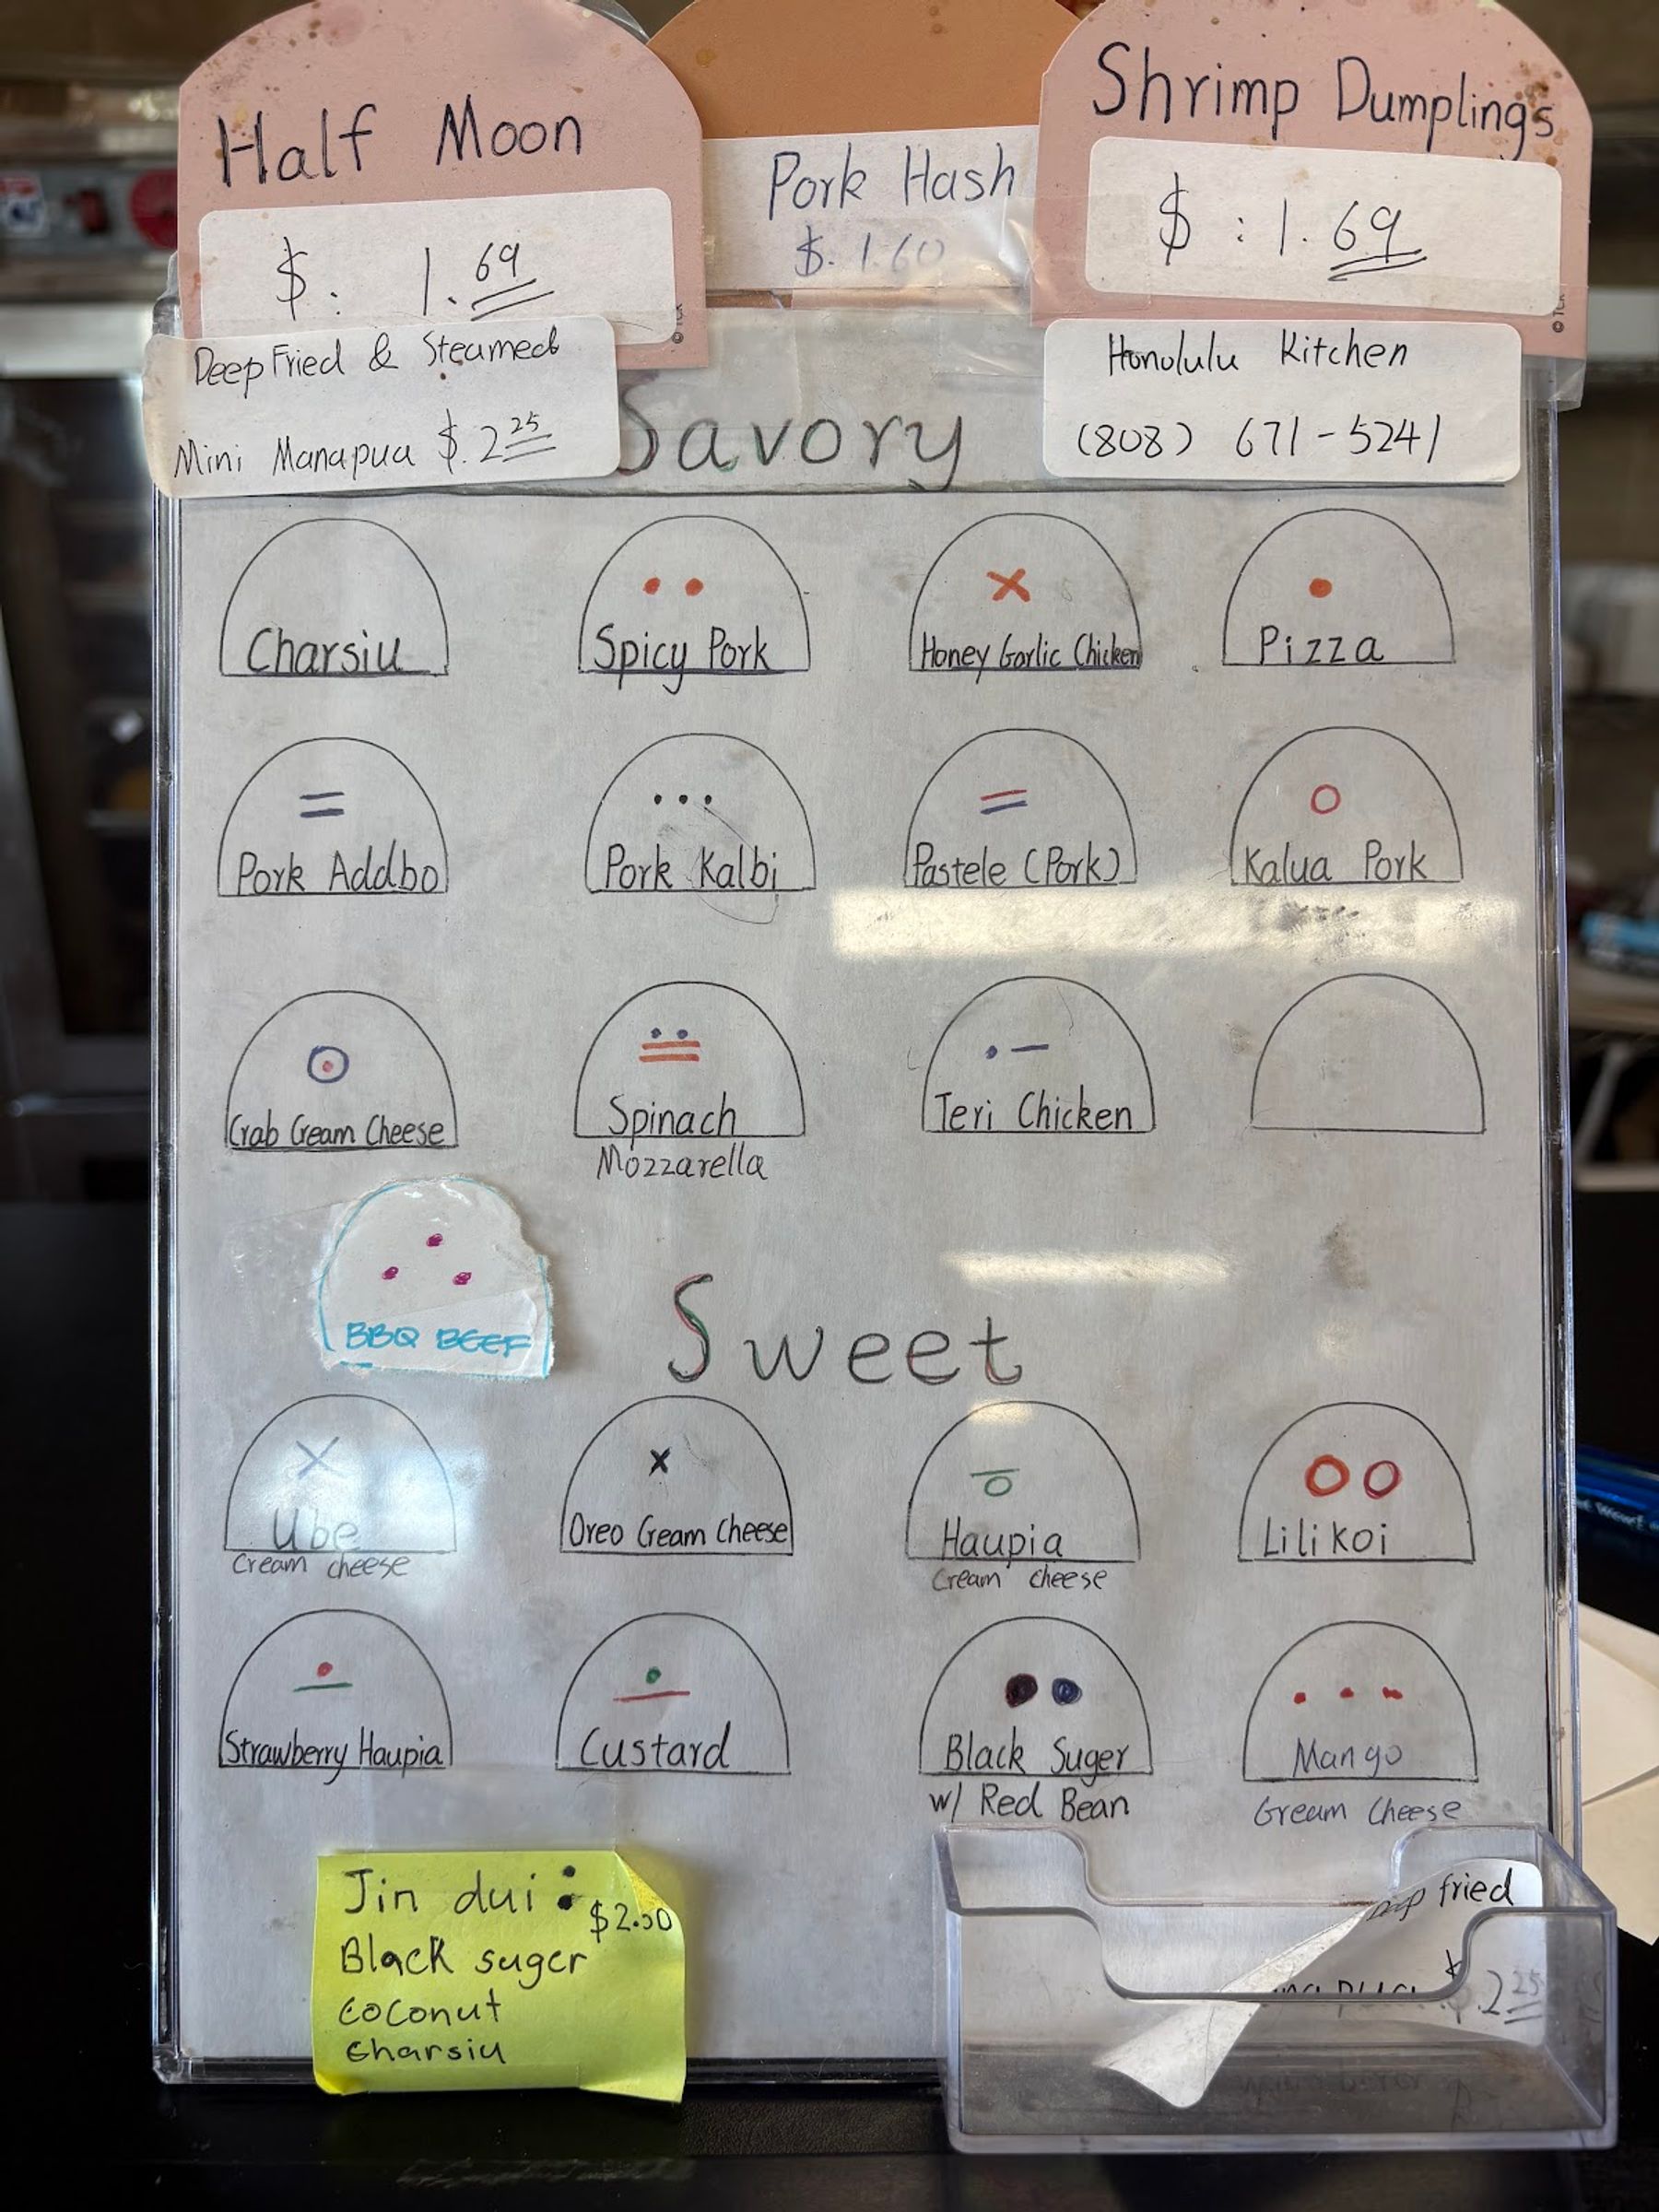 Half Moon
$. 1.69
Pork Hash
$. 1.60
Shrimp Dumplings
$: 1.69
Deep Fried & Steamed
Mini Manapua $.2 25
Honolulu Kitchen
(808) 671-5241
Savory
Charsiu
Spicy Pork
Honey Garlic Chicken
Pizza
Pork Addbo
Pork Kalbi
Pastele (Pork)
Kalua Pork
Crab Cream Cheese
Spinach
Mozzarella
Teri Chicken
BBQ BEEF
Sweet
Ube
Cream cheese
Oreo Cream Cheese
Haupia
Cream cheese
Lilikoi
Strawberry Haupia
Custard
Black Suger
w/ Red Bean
Mango
Cream Cheese
Jin dui:
$2.50
Black suger
Coconut
Charsiu
fried
$.2 25